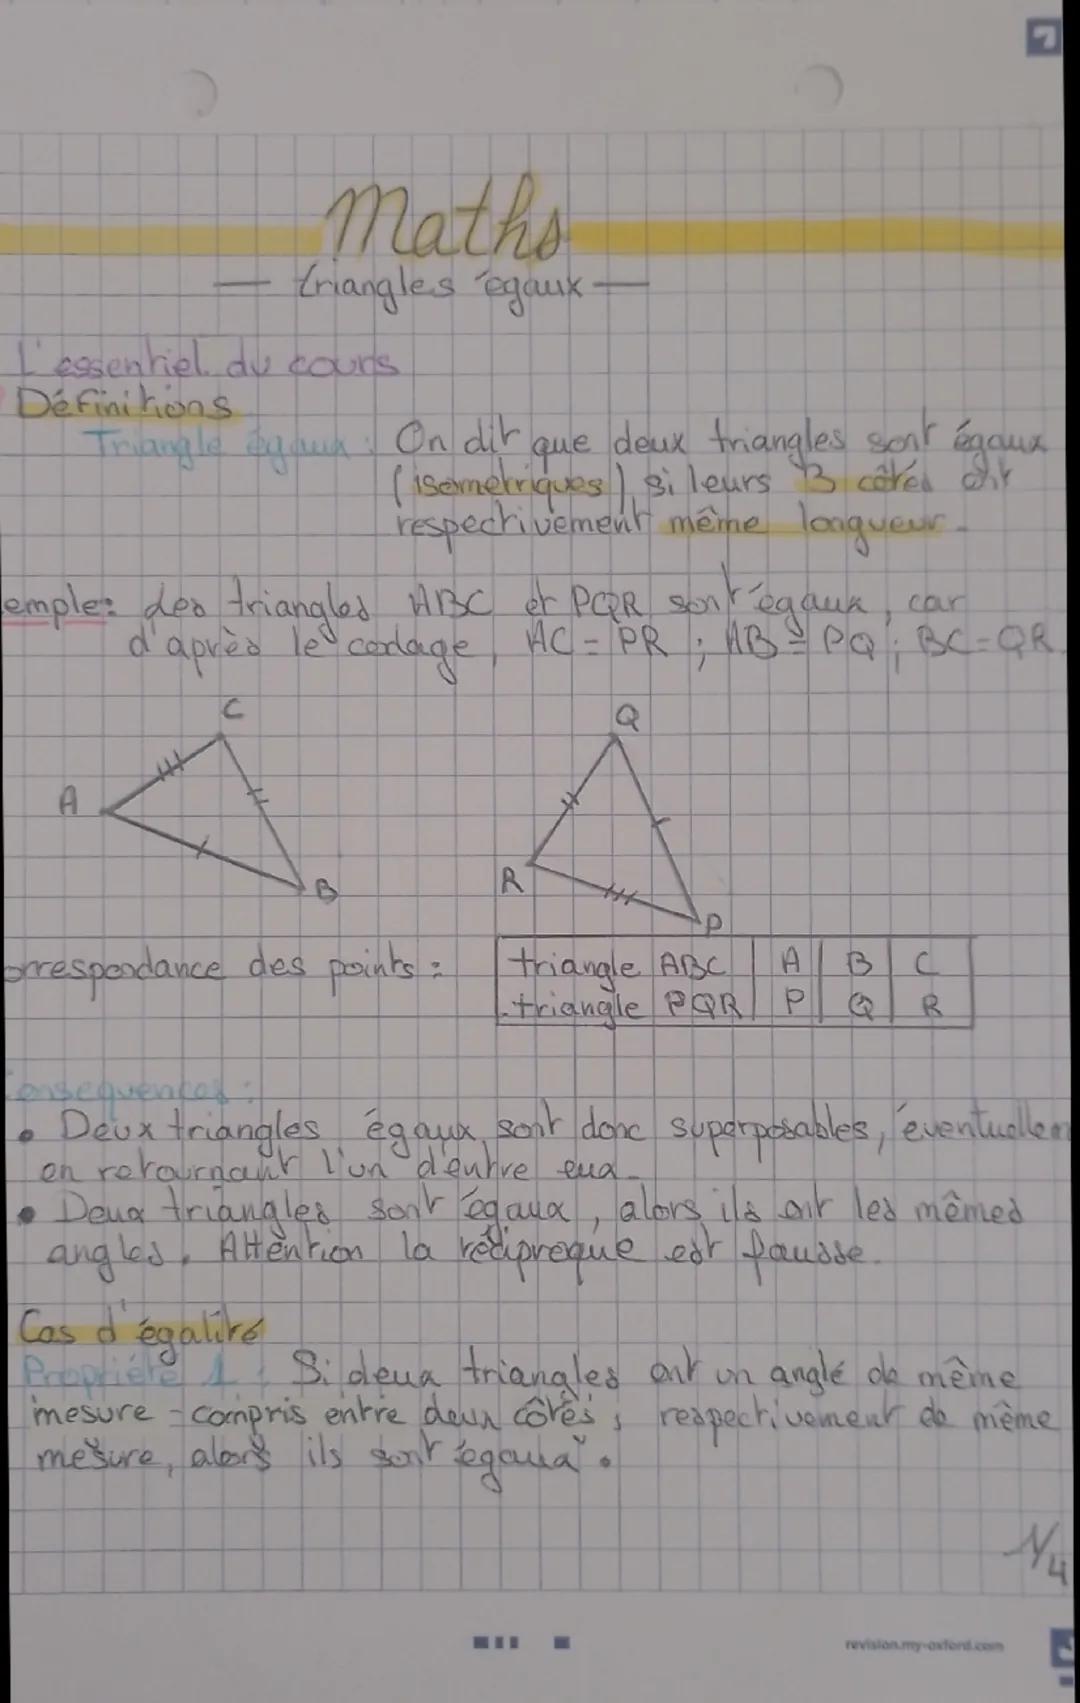 Maths
— triangles égaux —
L'essentiel du cours
Définitions
Triangle égaux : On dit que deux triangles sont égaux
(isometriques) si leurs 3 côtés ont
respectivement même longueur.
emple: des triangles ABC et PQR sont égaux, car
d'après le codage, AC = PR ; AB = PQ ; BC = QR
C
Q
A
B
R
P
orrespondance des points : triangle ABC A B C
triangle PQR P Q R
onsequences :
• Deux triangles égaux sont donc superposables, éventuellem
en retournant l'un d'entre eux.
• Deux triangles sont égaux, alors ils ont les mêmes
angles. Attention la réciproque est fausse.
Cas d'égalité
Propriété 1 : Si deux triangles ont un angle de même
mesure - compris entre deux côtés, respectivement de même
mesure, alors ils sont égaux.
1/4
revision.my-oxford.com